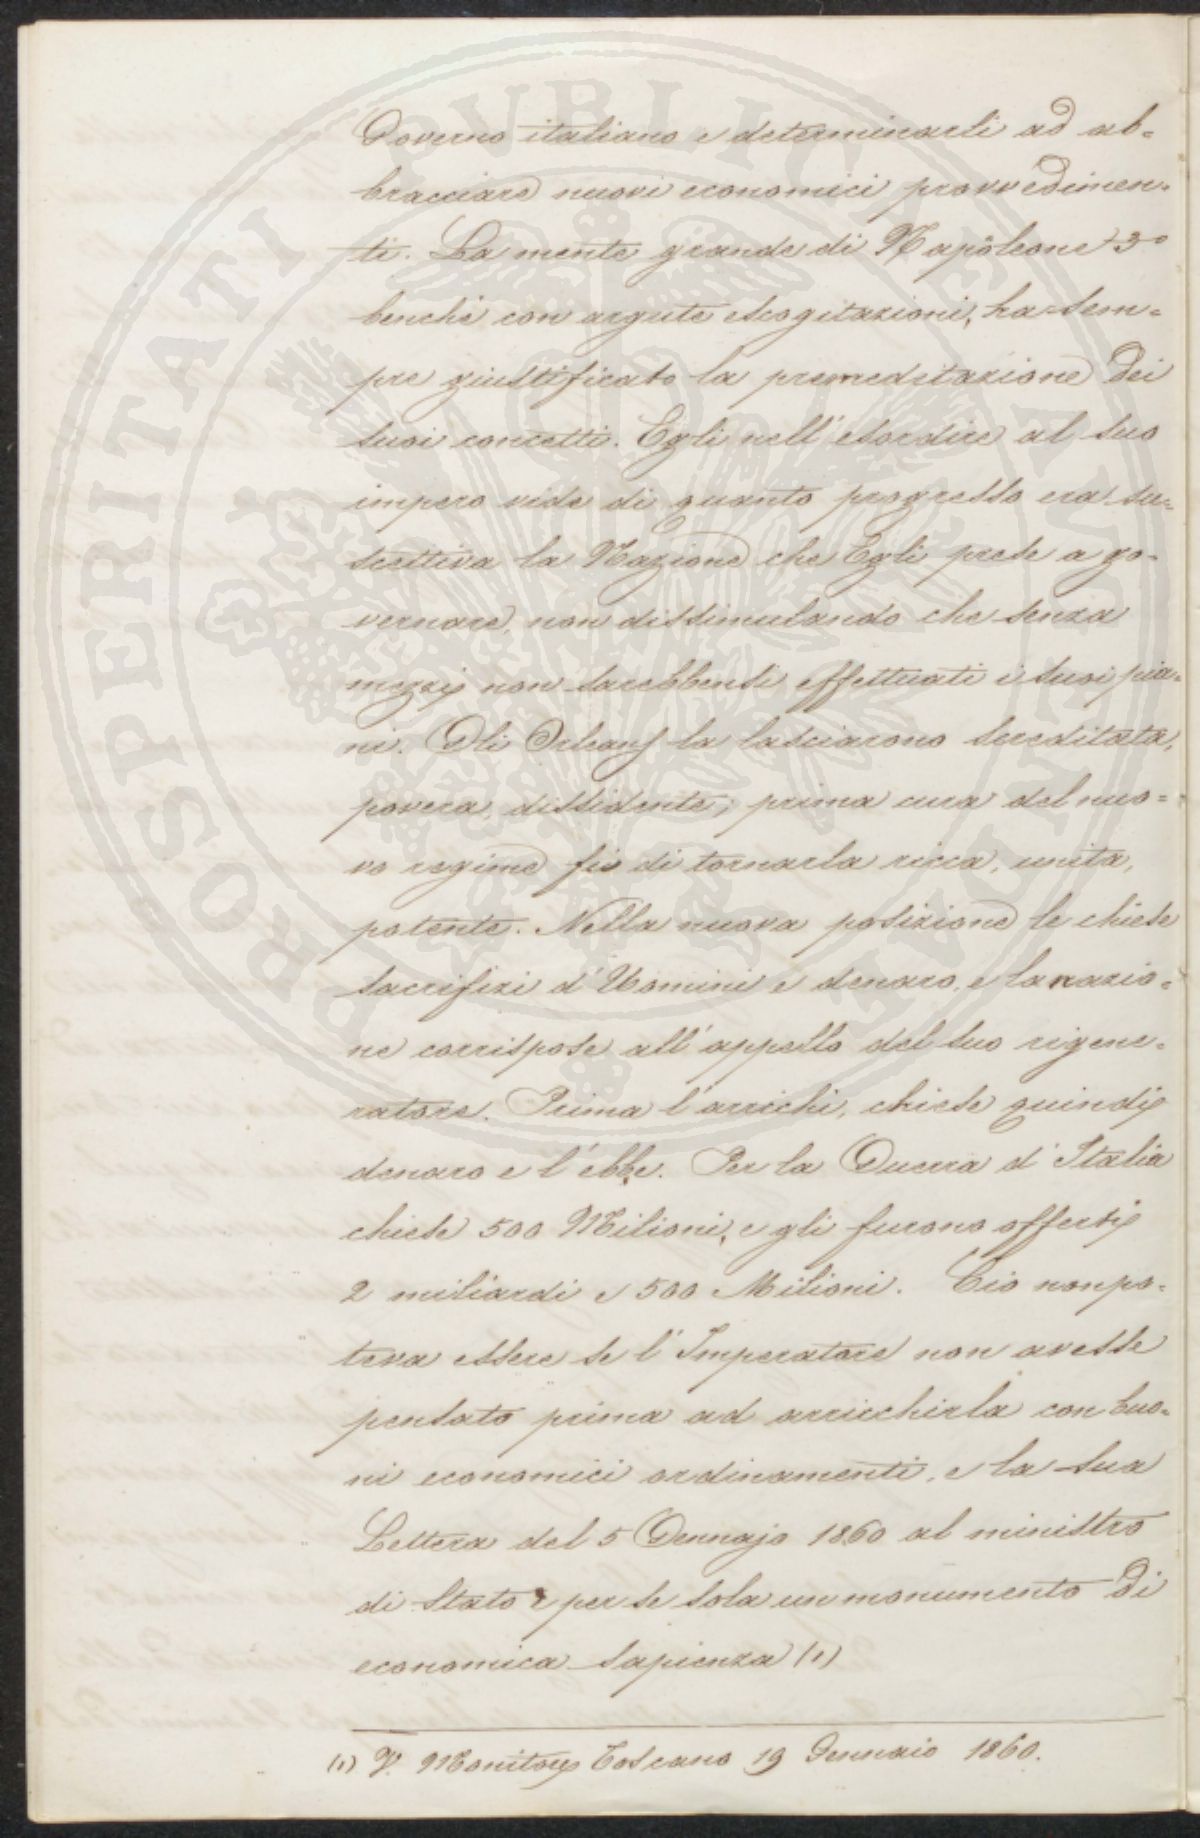 Governo italiano e determinarli ad ab=
bracciare nuovi economici provvedimen=
ti. La mente grande di Napoleone 3º
benchè con argute escogitazioni, ha sem=
pre giustificato la premeditazione dei
suoi concetti. Egli nell'esordire al suo
impero vide di quanto progresso era su=
scettiva la Nazione che Egli prese a go=
vernare, non dissimulando che senza
mezzi non sarebbensi effettuati i suoi pia=
ni. Gli Orleans la lasciarono sereditata,
povera, dissidente; prima cura del nuo=
vo regime fù di tornarla ricca, unita,
potente. Nella nuova posizione le chiese
sacrifizi d'Uomini e denaro, e la nazio=
ne corrispose all'appello del suo rigene=
ratore. Prima l'arrichì, chiese quindi
denaro e l'ebbe. Per la Guerra d'Italia
chiese 500 Milioni, e gli furono offerti
2 miliardi e 500 Milioni. Ciò non po=
teva essere se l'Imperatore non avesse
pensato prima ad arricchirla con buo=
ni economici ordinamenti, e la sua
Lettera del 5 Gennajo 1860 al ministro
di Stato è per se sola un monumento di
economica sapienza (1)
(1) V. Monitore Toscano 19 Gennaio 1860.
PROSPERITATI PVBLICAE AVGENDAE